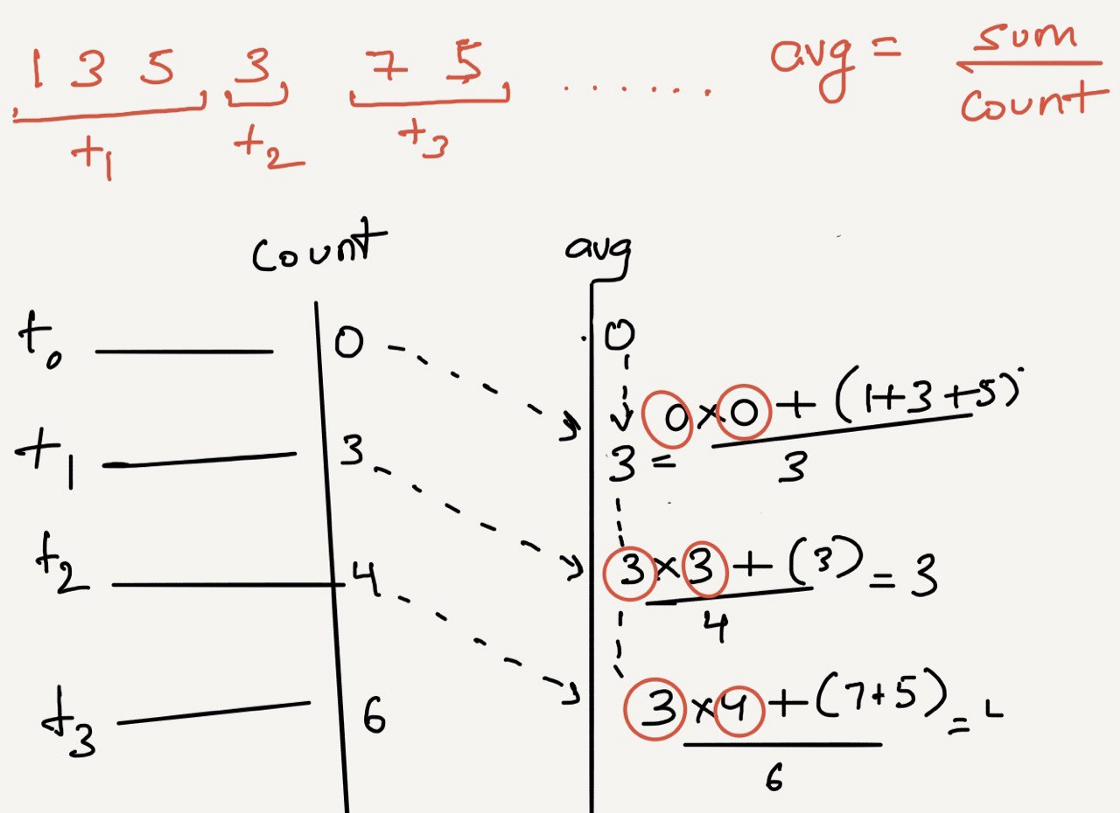 1 3 5 3, 7 5 ....... avg = sum
count
t1 t2 t3
count avg
t0 0 0
0×0 + (1+3+5)
t1 3 3 = 3
t2 4 3×3 + (3) = 3
4
t3 6 3×4 + (7+5) = 4
6